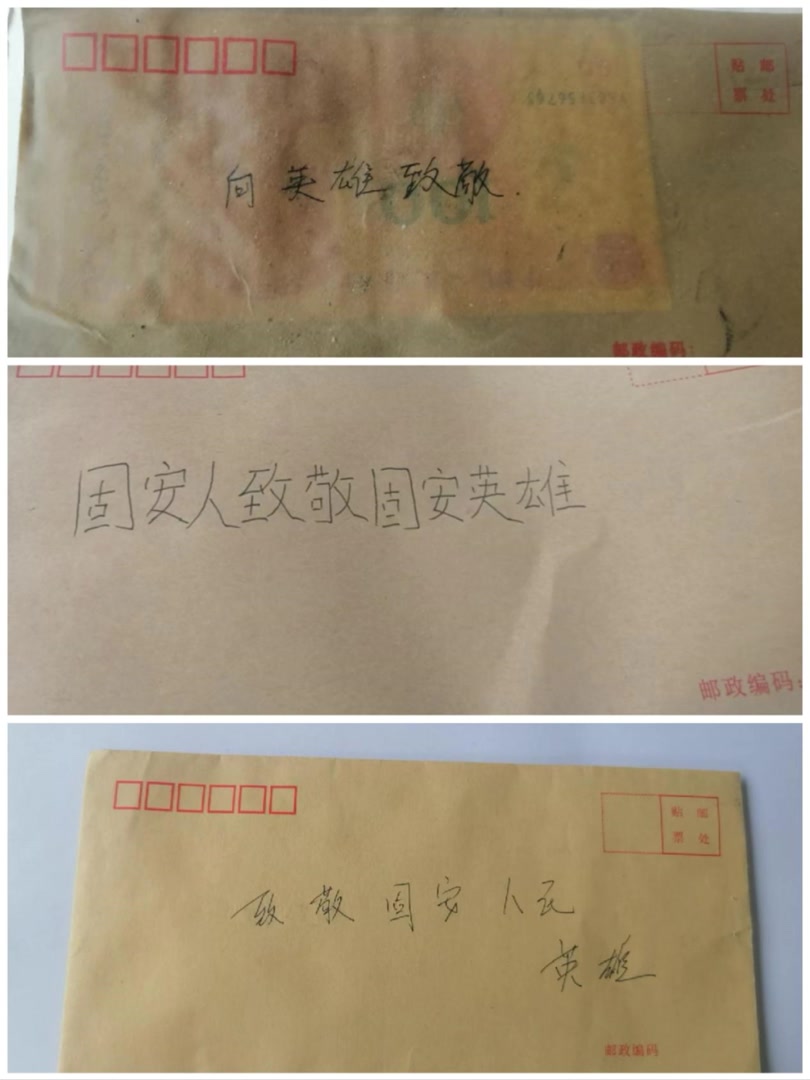 贴 邮
票 处
向英雄致敬.
100
邮政编码:
固安人致敬固安英雄
邮政编码:
贴 邮
票 处
致敬固安人民
英雄
邮政编码